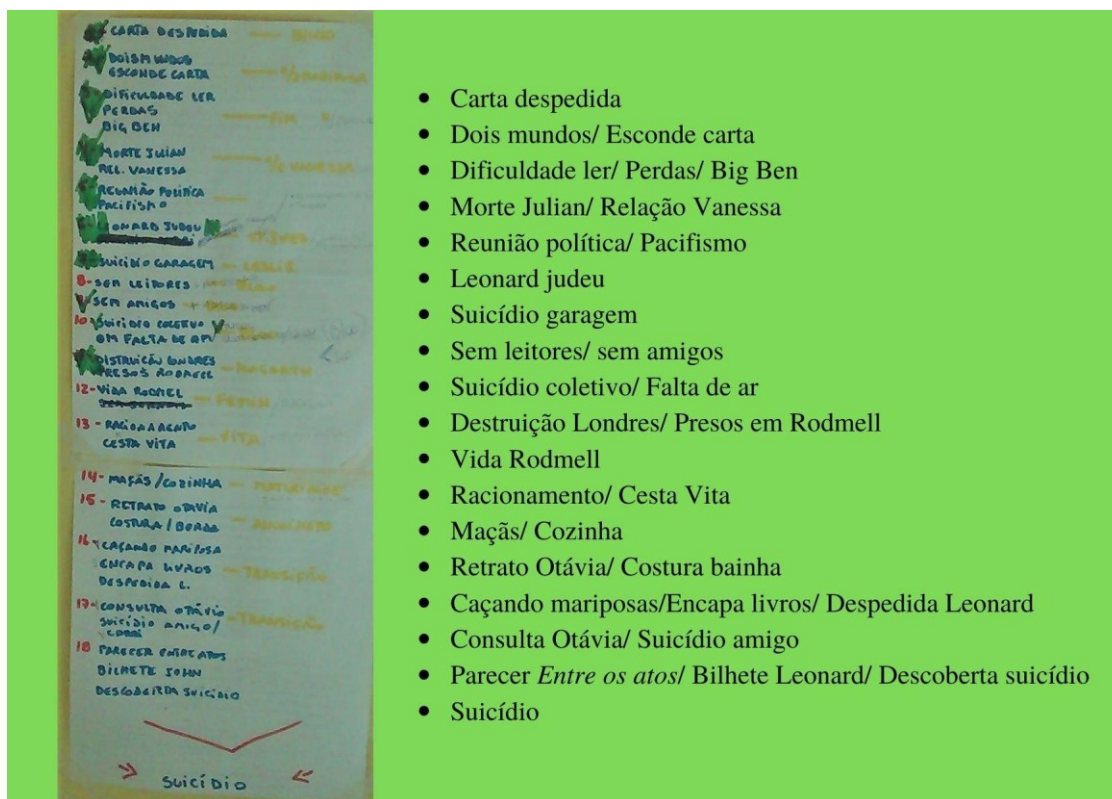 CARTA DESPEDIDA
DOIS MUNDOS
ESCONDE CARTA
DIFICULDADE LER
PERDAS
BIG BEN
FIM
MORTE JULIAN
REL. VANESSA
VANESSA
REUNIÃO POLÍTICA
PACIFISMO
LEONARD JUDEU
SUICÍDIO GARAGEM — LESLIE
8- SEM LEITORES
SEM AMIGOS
10- SUICÍDIO COLETIVO
FALTA DE AR
DISTRUIÇÃO LONDRES
PRESOS RODMELL — HOGARTH
12- VIDA RODMEL
13 - RACIONAMENTO
CESTA VITA — VITA
14- MAÇÃS / COZINHA
15 - RETRATO OTAVIA
COSTURA /
16- CAÇANDO MARIPOSA
ENCAPA LIVROS — TRANSIÇÃO
DESPEDIDA L.
17- CONSULTA OTÁVIA
SUICÍDIO AMIGO / — TRANSIÇÃO
18 PARECER ENTRE ATOS
BILHETE JOHN
DESCOBERTA SUICÍDIO
SUICÍDIO
• Carta despedida
• Dois mundos/ Esconde carta
• Dificuldade ler/ Perdas/ Big Ben
• Morte Julian/ Relação Vanessa
• Reunião política/ Pacifismo
• Leonard judeu
• Suicídio garagem
• Sem leitores/ sem amigos
• Suicídio coletivo/ Falta de ar
• Destruição Londres/ Presos em Rodmell
• Vida Rodmell
• Racionamento/ Cesta Vita
• Maçãs/ Cozinha
• Retrato Otávia/ Costura bainha
• Caçando mariposas/Encapa livros/ Despedida Leonard
• Consulta Otávia/ Suicídio amigo
• Parecer Entre os atos/ Bilhete Leonard/ Descoberta suicídio
• Suicídio